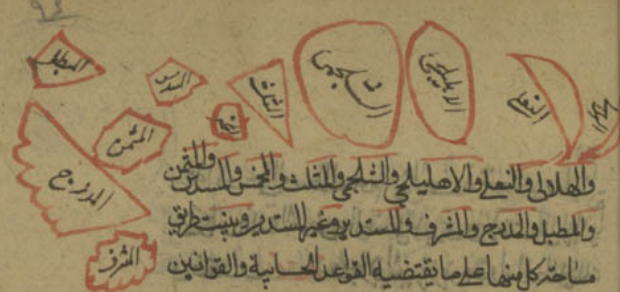 ٩٤
المطبل
المسدس
المثلث
الشلجمي
الاهليلجي
النعلي
الهلالي
المخمس
المثمن
المدرج
المشرف
والهلالى والنعلى والاهليلجى والشلجمى والمثلث والمخمس والمسدس والمثمن
والمطبل والمدرج والمشرف والمستدير وغير المستدير وبينت طريق
مساحة كل منها على ما يقتضيه القواعد الحسابية والقوانين